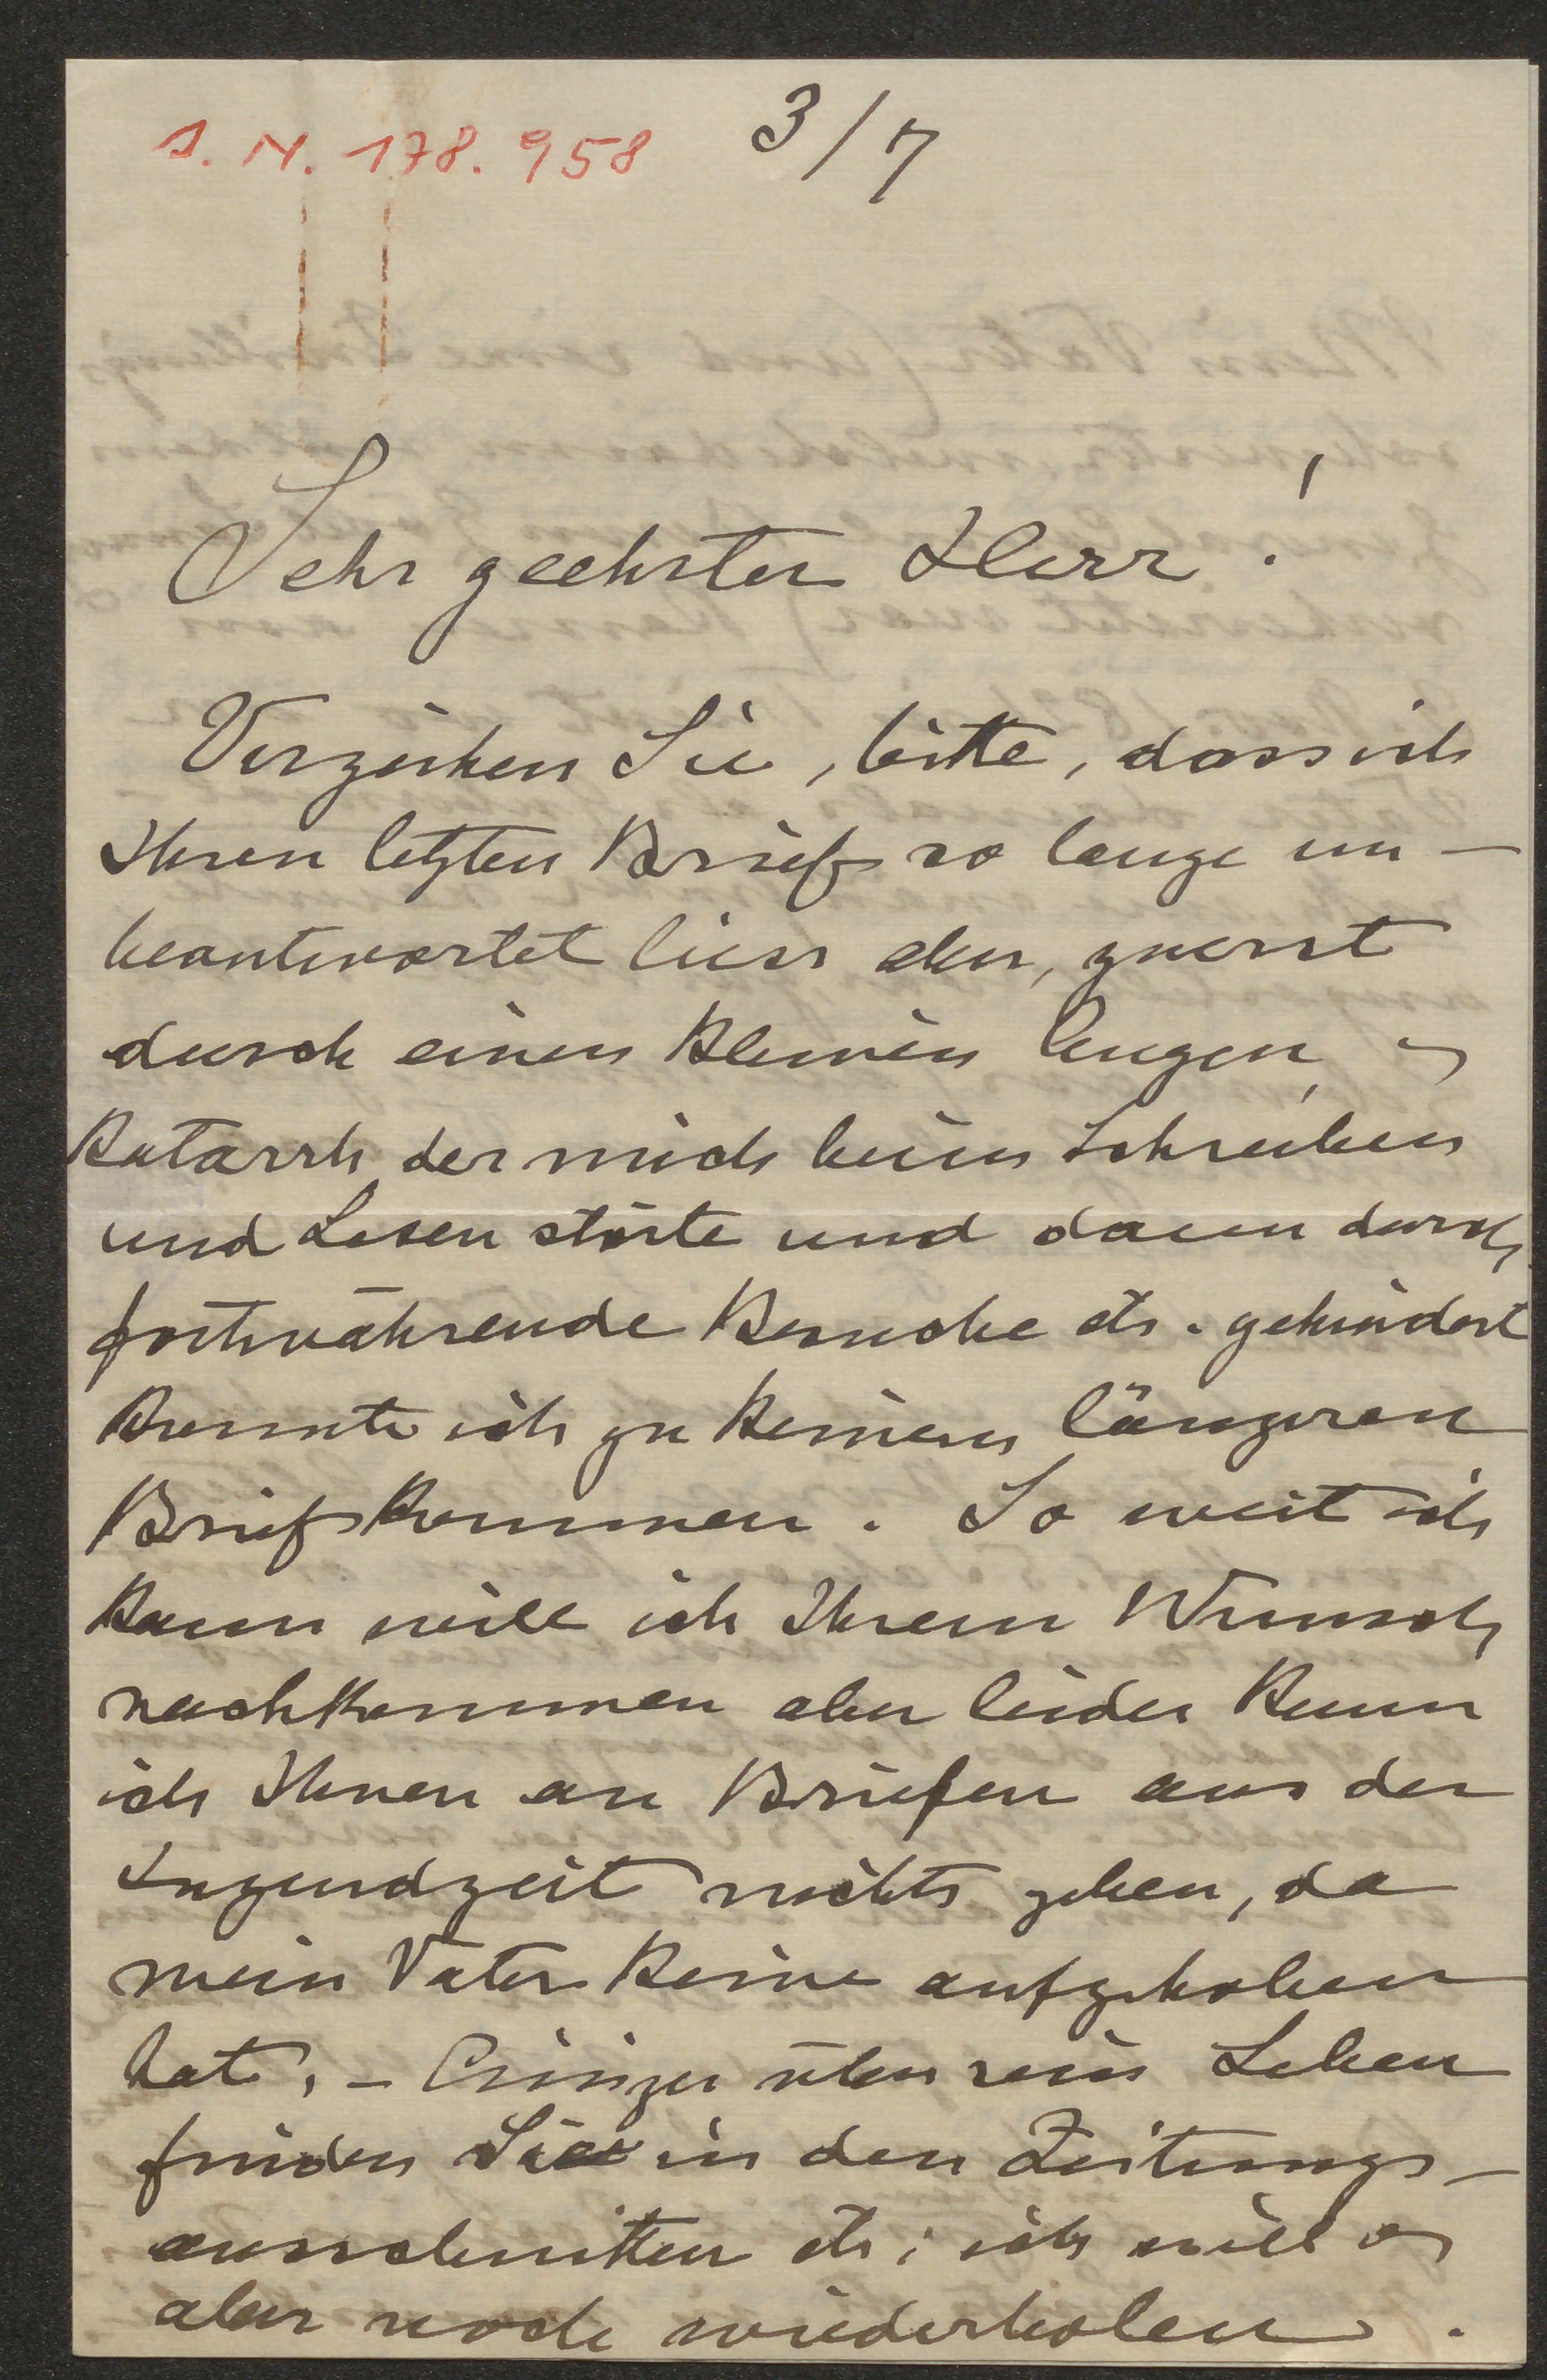 J. N. 178.958 3/7
Sehr geehrter Herr!
Verzeihen Sie, bitte, dass ich
Ihren letzten Brief so lange un-
beantwortet liess aber, zuerst
durch einen kleinen Augen,
Katarrh der mich beim Schreiben
und Lesen störte und dann durch
fortwährende Besuche etc. gehindert
konnte ich zu keinem längeren
Brief kommen. So weit ich
kann will ich Ihrem Wunsch
nachkommen aber leider kann
ich Ihnen an Briefen aus der
Jugendzeit nichts geben, da
mein Vater keine aufgehoben
hat. - Einiges über sein Leben
finden Sie in den Zeitungs-
ausschnitten etc; ich will es
aber noch wiederholen.